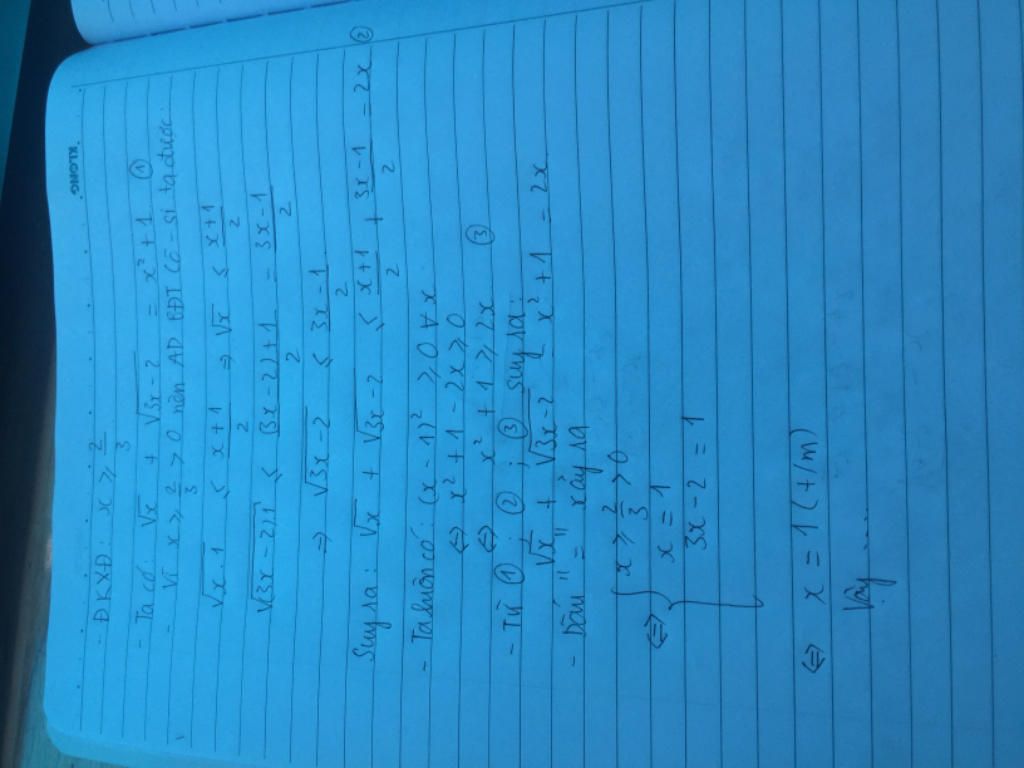 KLONG
- ĐKXĐ: x ≥ 2/3
- Ta có: √x + √(3x-2) = x² + 1 ①
- Vì x ≥ 2/3 > 0 nên AD BĐT Cô-si ta được:
√(x.1) ≤ (x+1)/2 ⇒ √x ≤ (x+1)/2
√((3x-2)1) ≤ ((3x-2)+1)/2 = (3x-1)/2
⇒ √(3x-2) ≤ (3x-1)/2
Suy ra: √x + √(3x-2) ≤ (x+1)/2 + (3x-1)/2 = 2x ②
- Ta luôn có: (x-1)² ≥ 0 ∀x
⇔ x² + 1 - 2x ≥ 0
⇔ x² + 1 ≥ 2x ③
- Từ ① ; ② ; ③ suy ra:
√x + √(3x-2) = x² + 1 = 2x
- Dấu "=" xảy ra
⇔ { x ≥ 2/3 > 0
x = 1
3x - 2 = 1
⇔ x = 1 (t/m)
Vậy ....